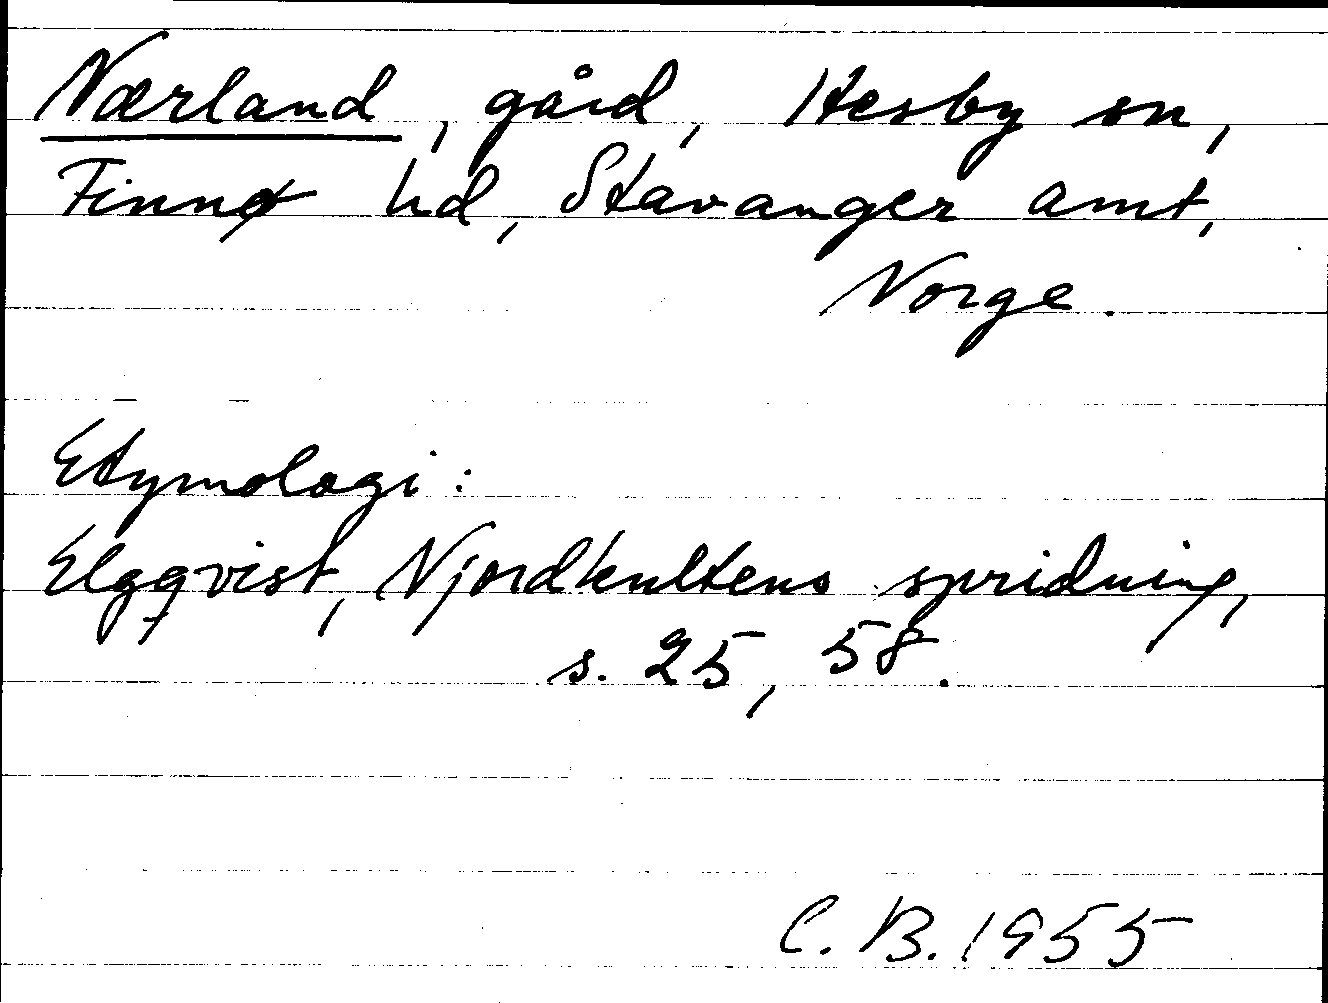 Nærland, gård, Hesby sn,
Finnø hd, Stavanger amt,
Norge.
Etymologi:
Elgqvist, Njordkultens spridning,
s. 25, 58.
C. B. 1955